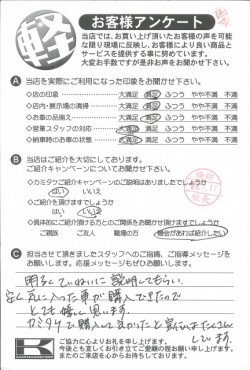 軽
お客様アンケート
当店では、お買い上げ頂いたお客様の声を可能
な限り現場に反映し、お客様により良い商品と
サービスを提供する事を心がけています。
大変お手数ですが是非お声をお聞かせ下さい。
A 当店を実際にご利用になった印象をお聞かせ下さい。
◇店の印象 大満足 満足 ふつう やや不満 不満
◇店内・展示場の清掃 大満足 満足 ふつう やや不満 不満
◇お車の品揃え 大満足 満足 ふつう やや不満 不満
◇営業スタッフの対応 大満足 満足 ふつう やや不満 不満
◇納車時のお車の状態 大満足 満足 ふつう やや不満 不満
B 当店はご紹介を大切にしております。
ご紹介キャンペーンについてお聞かせ下さい。
◇カミタケご紹介キャンペーンのご説明はありましたでしょうか
はい いいえ
◇ご紹介を頂けますでしょうか
はい いいえ
◇具体的にご紹介頂ける方とのご関係をお聞かせ頂けますでしょうか
ご親戚 ご友人 職場の方 機会があれば紹介したい
C 担当させて頂きましたスタッフへのご指摘、ご指導メッセージを
お願いします。応援メッセージもぜひお願いします。
明るくていねいに説明してもらい、
気に入った車が購入できたので
とても嬉しく思います。
カミタケで購入して良かったと
しています。
K
ご協力に心よりお礼を申し上げます。
今後とも宜しくお引き立てご愛顧の程お願い申し上げます。
またのご来店を心からお待ちしております。